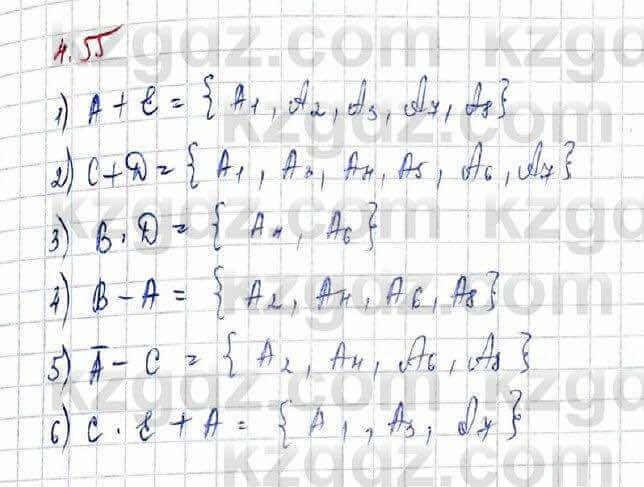 4.55
1) A + E = { A₁ , A₂ , A₃ , A₇ , A₈ }
2) C + D = { A₁ , A₃ , A₄ , A₅ , A₆ , A₇ }
3) B · D = { A₄ , A₆ }
4) B − A = { A₂ , A₄ , A₆ , A₈ }
5) A̅ − C = { A₂ , A₄ , A₆ , A₈ }
6) C · E + A = { A₁ , , A₃ , A₇ }
kzgdz.com